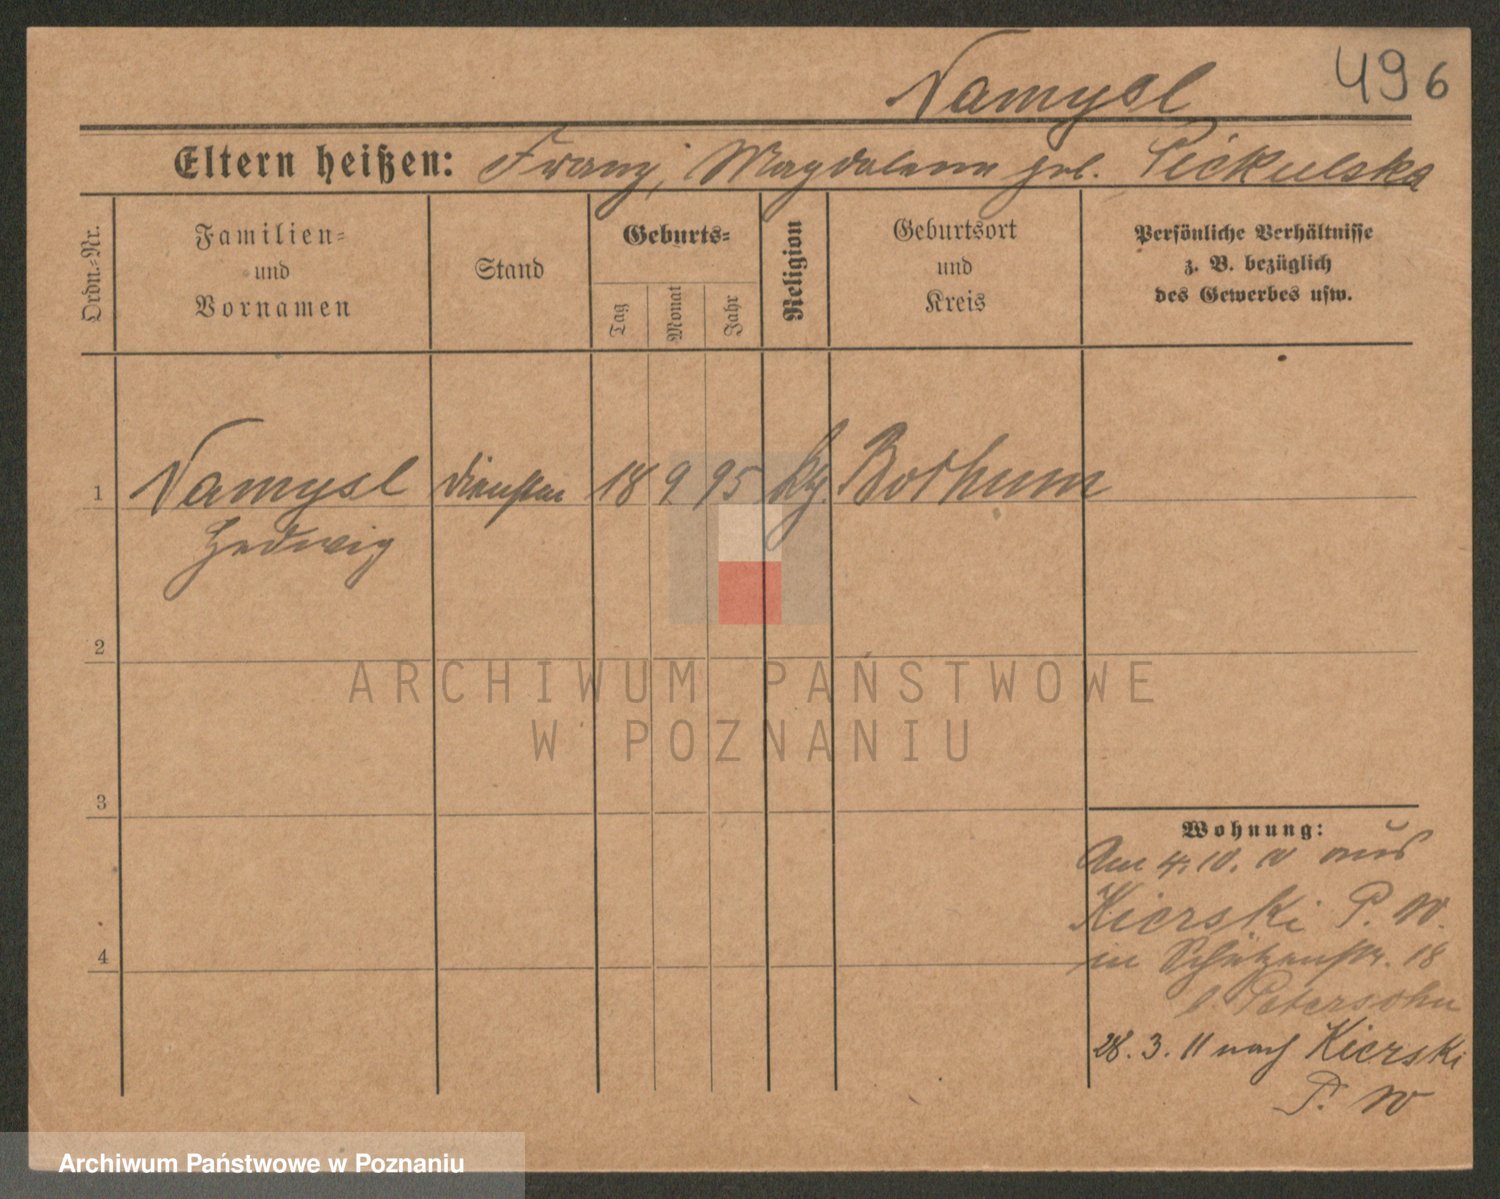 Namysl 496
Eltern heißen: Franz, Magdalena geb. Piekulska
Ordn.=Nr.
Familien=
und
Vornamen
Stand
Geburts=
Tag
Monat
Jahr
Religion
Geburtsort
und
Kreis
Persönliche Verhältnisse
z. B. bezüglich
des Gewerbes usw.
1 Namysl 18 9 95 kg. Bothum
Hedwig
2
3
4
Wohnung:
Am 4. 10. 10 aus
Kierski P. W.
in Schützenstr. 18
b. Petersohn
28. 3. 11 nach Kierski
P. W
ARCHIWUM PAŃSTWOWE
W POZNANIU
Archiwum Państwowe w Poznaniu